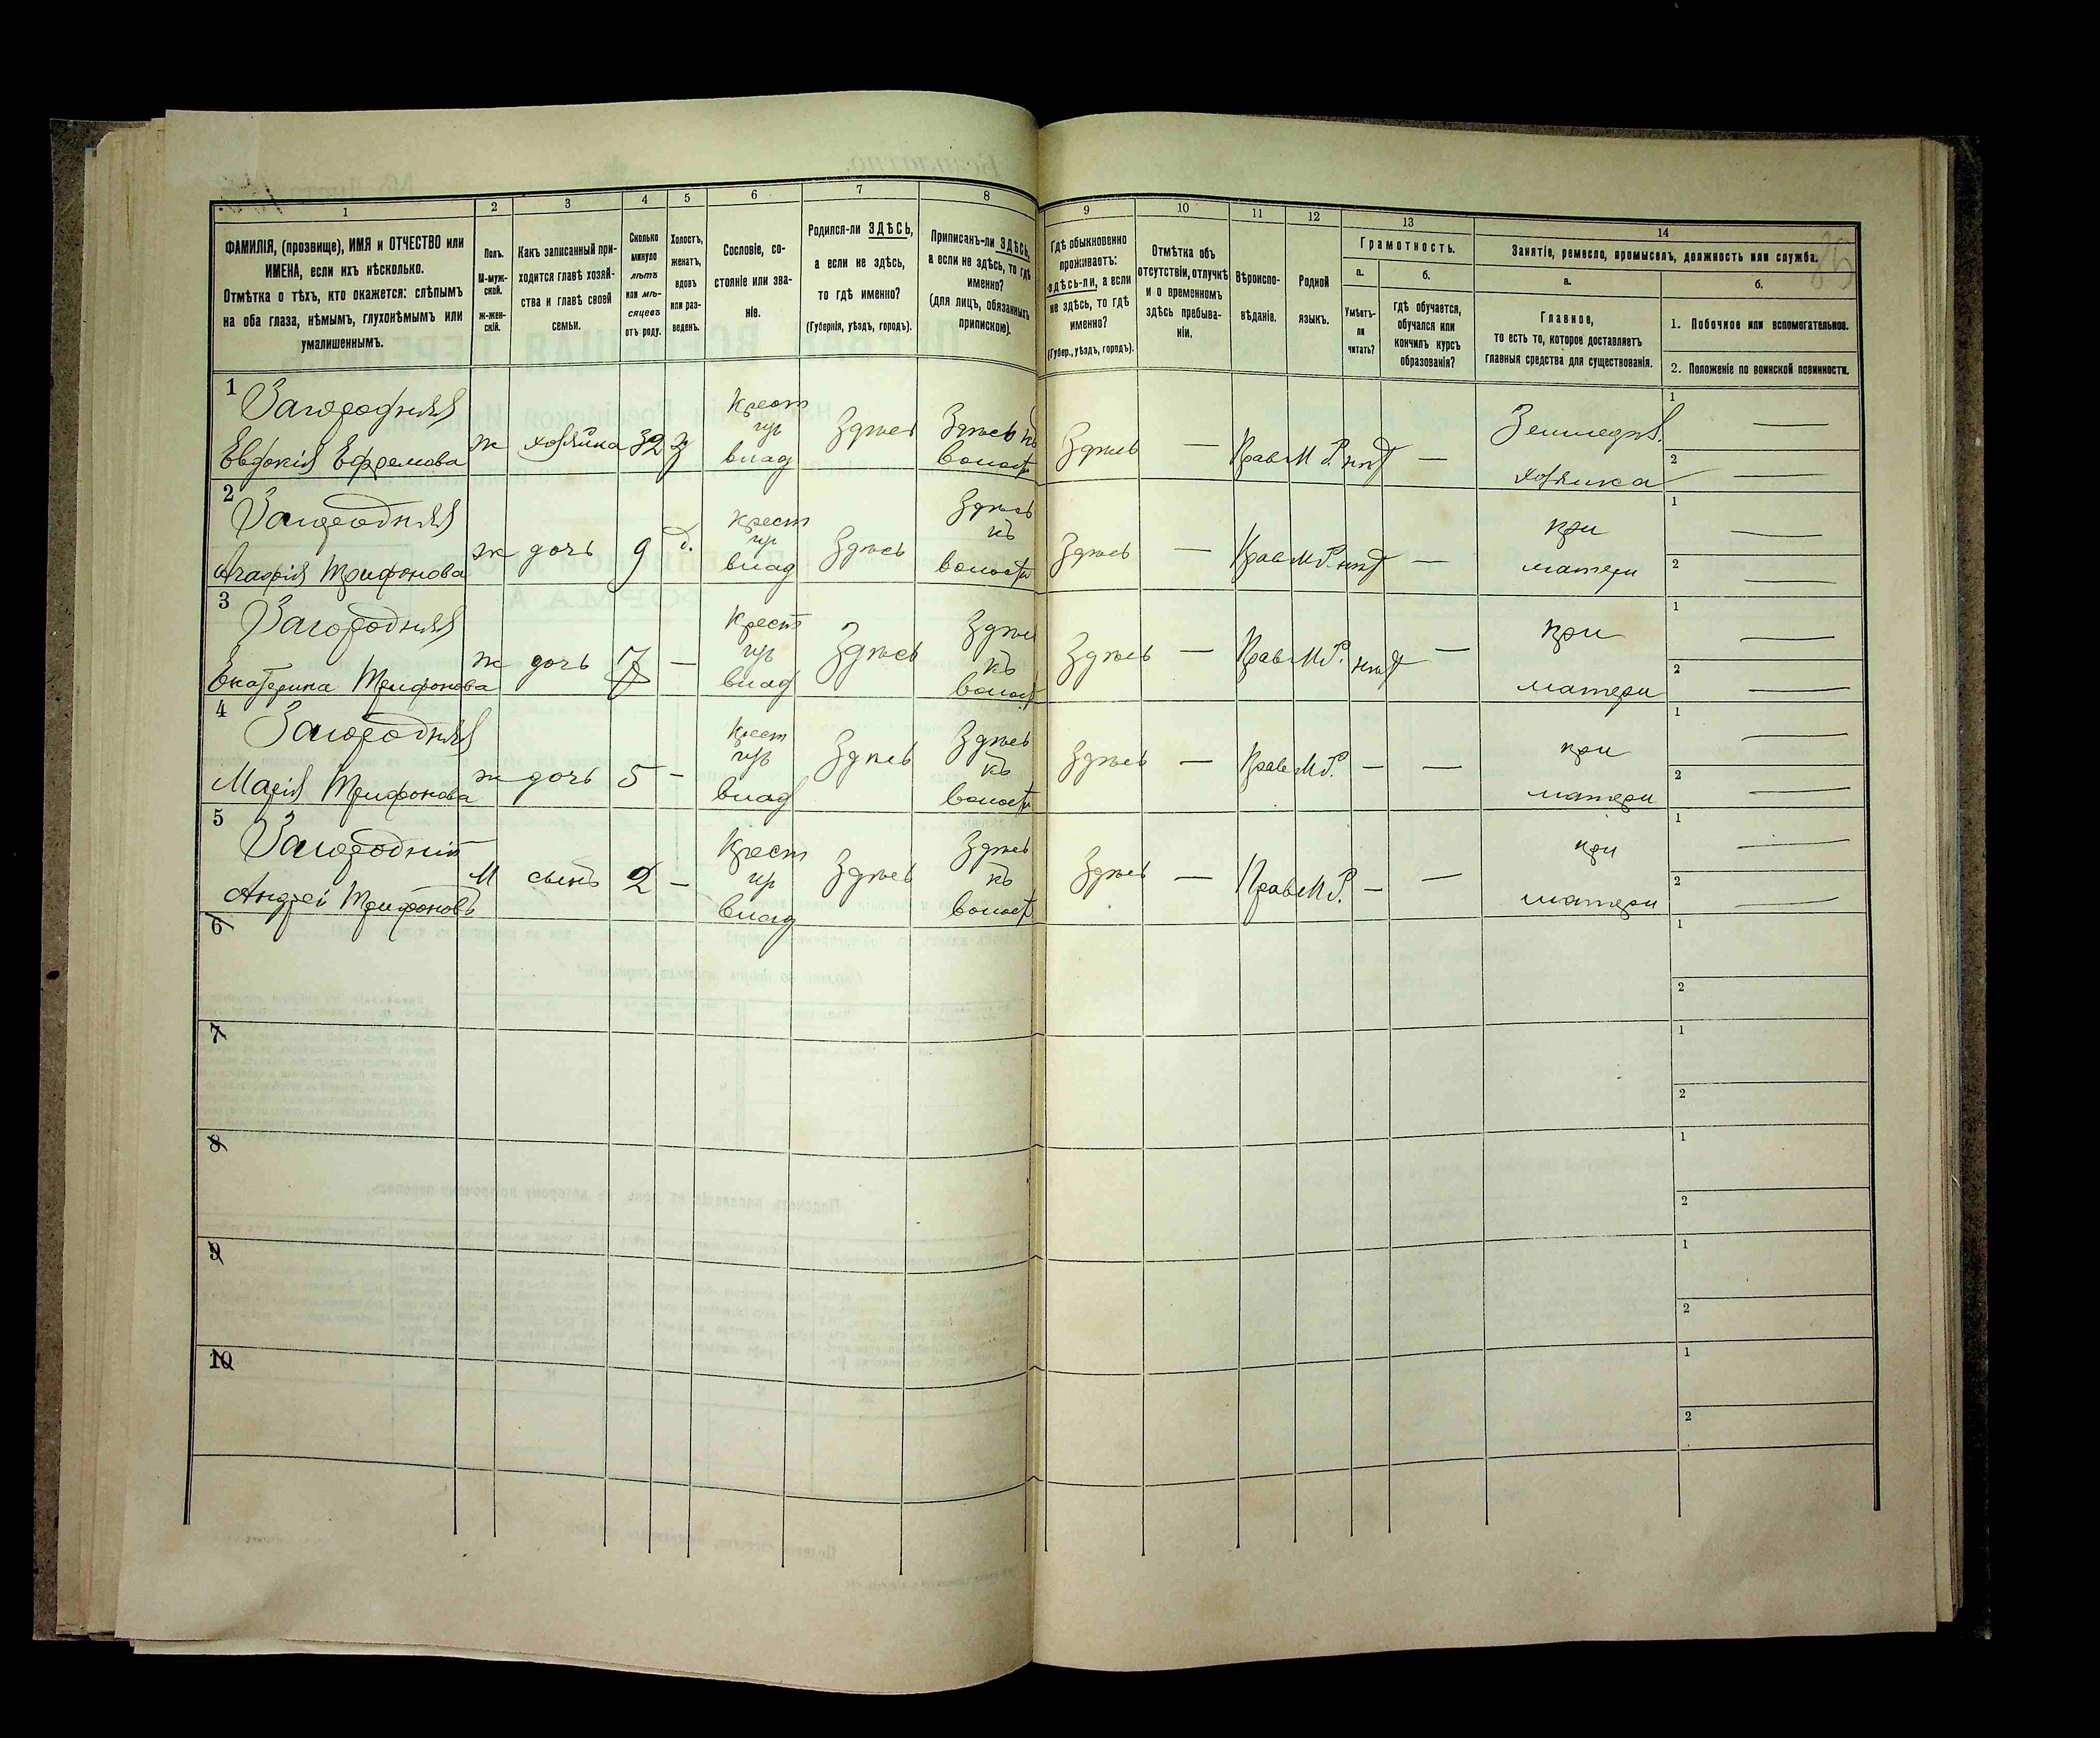 1 2 3 4 5 6 7 8 9 10 11 12 13 14
ФАМИЛІЯ, (прозвище), ИМЯ и ОТЧЕСТВО или
ИМЕНА, если ихъ нѣсколько.
Отмѣтка о тѣхъ, кто окажется: слѣпымъ
на оба глаза, нѣмымъ, глухонѣмымъ или
умалишеннымъ.
Полъ.
М-муж-
ской.
ж-жен-
скій.
Какъ записанный при-
ходится главѣ хозяй-
ства и главѣ своей
семьи.
Сколько
минуло
лѣтъ
или мѣ-
сяцевъ
отъ роду.
Холостъ,
женатъ,
вдовъ
или раз-
веденъ.
Сословіе, со-
стояніе или зва-
ніе.
Родился-ли ЗДѢСЬ,
а если не здѣсь,
то гдѣ именно?
(Губернія, уѣздъ, городъ).
Приписанъ-ли ЗДѢСЬ,
а если не здѣсь, то гдѣ
именно?
(для лицъ, обязанныхъ
припискою).
Гдѣ обыкновенно
проживаетъ:
здѣсь-ли, а если
не здѣсь, то гдѣ
именно?
(Губер., уѣздъ, городъ).
Отмѣтка объ
отсутствіи, отлучкѣ
и о временномъ
здѣсь пребыва-
ніи.
Вѣроиспо-
вѣданіе.
Родной
языкъ.
Грамотность.
а.
Умѣетъ-
ли
читать?
б.
Гдѣ обучается,
обучался или
кончилъ курсъ
образованія?
Занятіе, ремесло, промыселъ, должность или служба.
а.
Главное,
то есть то, которое доставляетъ
главныя средства для существованія.
б.
1. Побочное или вспомогательное.
2. Положеніе по воинской повинности.
1 Загородняя
Евдокія Ефремова
ж
хозяйка
32
Крест
влад
Здѣсь
Здѣсь къ
волости
Здѣсь
—
Прав
М Р.
нѣт
—
Земледѣл.
хозяйка
1 —
2 —
2 Загородняя
Агафія Трифонова
ж
дочь
9
Крест
влад
Здѣсь
Здѣсь
къ
волости
Здѣсь
—
Прав
М Р.
нѣт
—
при
матери
1 —
2 —
3 Загородняя
Екатерина Трифонова
ж
дочь
7
—
Крест
влад
Здѣсь
Здѣсь
къ
волост
Здѣсь
—
Прав
М Р.
нѣт
—
при
матери
1 —
2 —
4 Загородняя
Марія Трифонова
ж
дочь
5
—
Крест
влад
Здѣсь
Здѣсь
къ
волости
Здѣсь
—
Прав
М Р.
—
—
при
матери
1 —
2 —
5 Загородній
Андрей Трифоновъ
М
сынъ
2
—
Крест
влад
Здѣсь
Здѣсь
къ
волост
Здѣсь
—
Прав
М Р.
—
—
при
матери
1 —
2 —
6
1
2
7
1
2
8
1
2
9
1
2
10
1
2